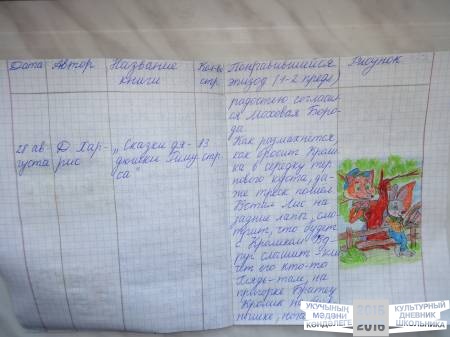 Дата Автор Название книги Кол-во стр. Понравившийся эпизод (1-2 предл.) Рисунок
радостью согласил-
ся Моховая Боро-
да.
28 ав-
густа
Д. Хар-
рис
„Сказки дя-
дюшки Риму-
са"
13
стр.
Как размахнётся,
как бросит Кроли-
ка в середку тер-
нового куста, да-
же треск пошёл.
Встал Лис на
задние лапы, смо-
трит, что будет
с Кроликом. Вд-
руг слышит -
его кто-то
Глядь - там, на
пригорке Братец
Кролик
УКУЧЫНЫҢ
МӘДӘНИ
КӨНДӘЛЕГЕ
2015
2016
КУЛЬТУРНЫЙ
ДНЕВНИК
ШКОЛЬНИКА